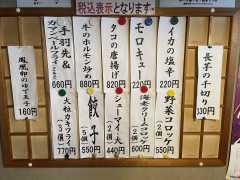 税込表示となります。
長芋の千切り
330円
イカの塩辛
220円
野菜コロッケ
550円
モロキュー
220円
海老クリームコロッケ
600円
タコの唐揚げ
820円
シューマイ・大
440円
牛のホルモン炒め
880円
餃子
5ヶ550円
手羽先&
カマンベールフライ
660円
大粒カキフライ
770円
鳳凰卵のゆで玉子
160円